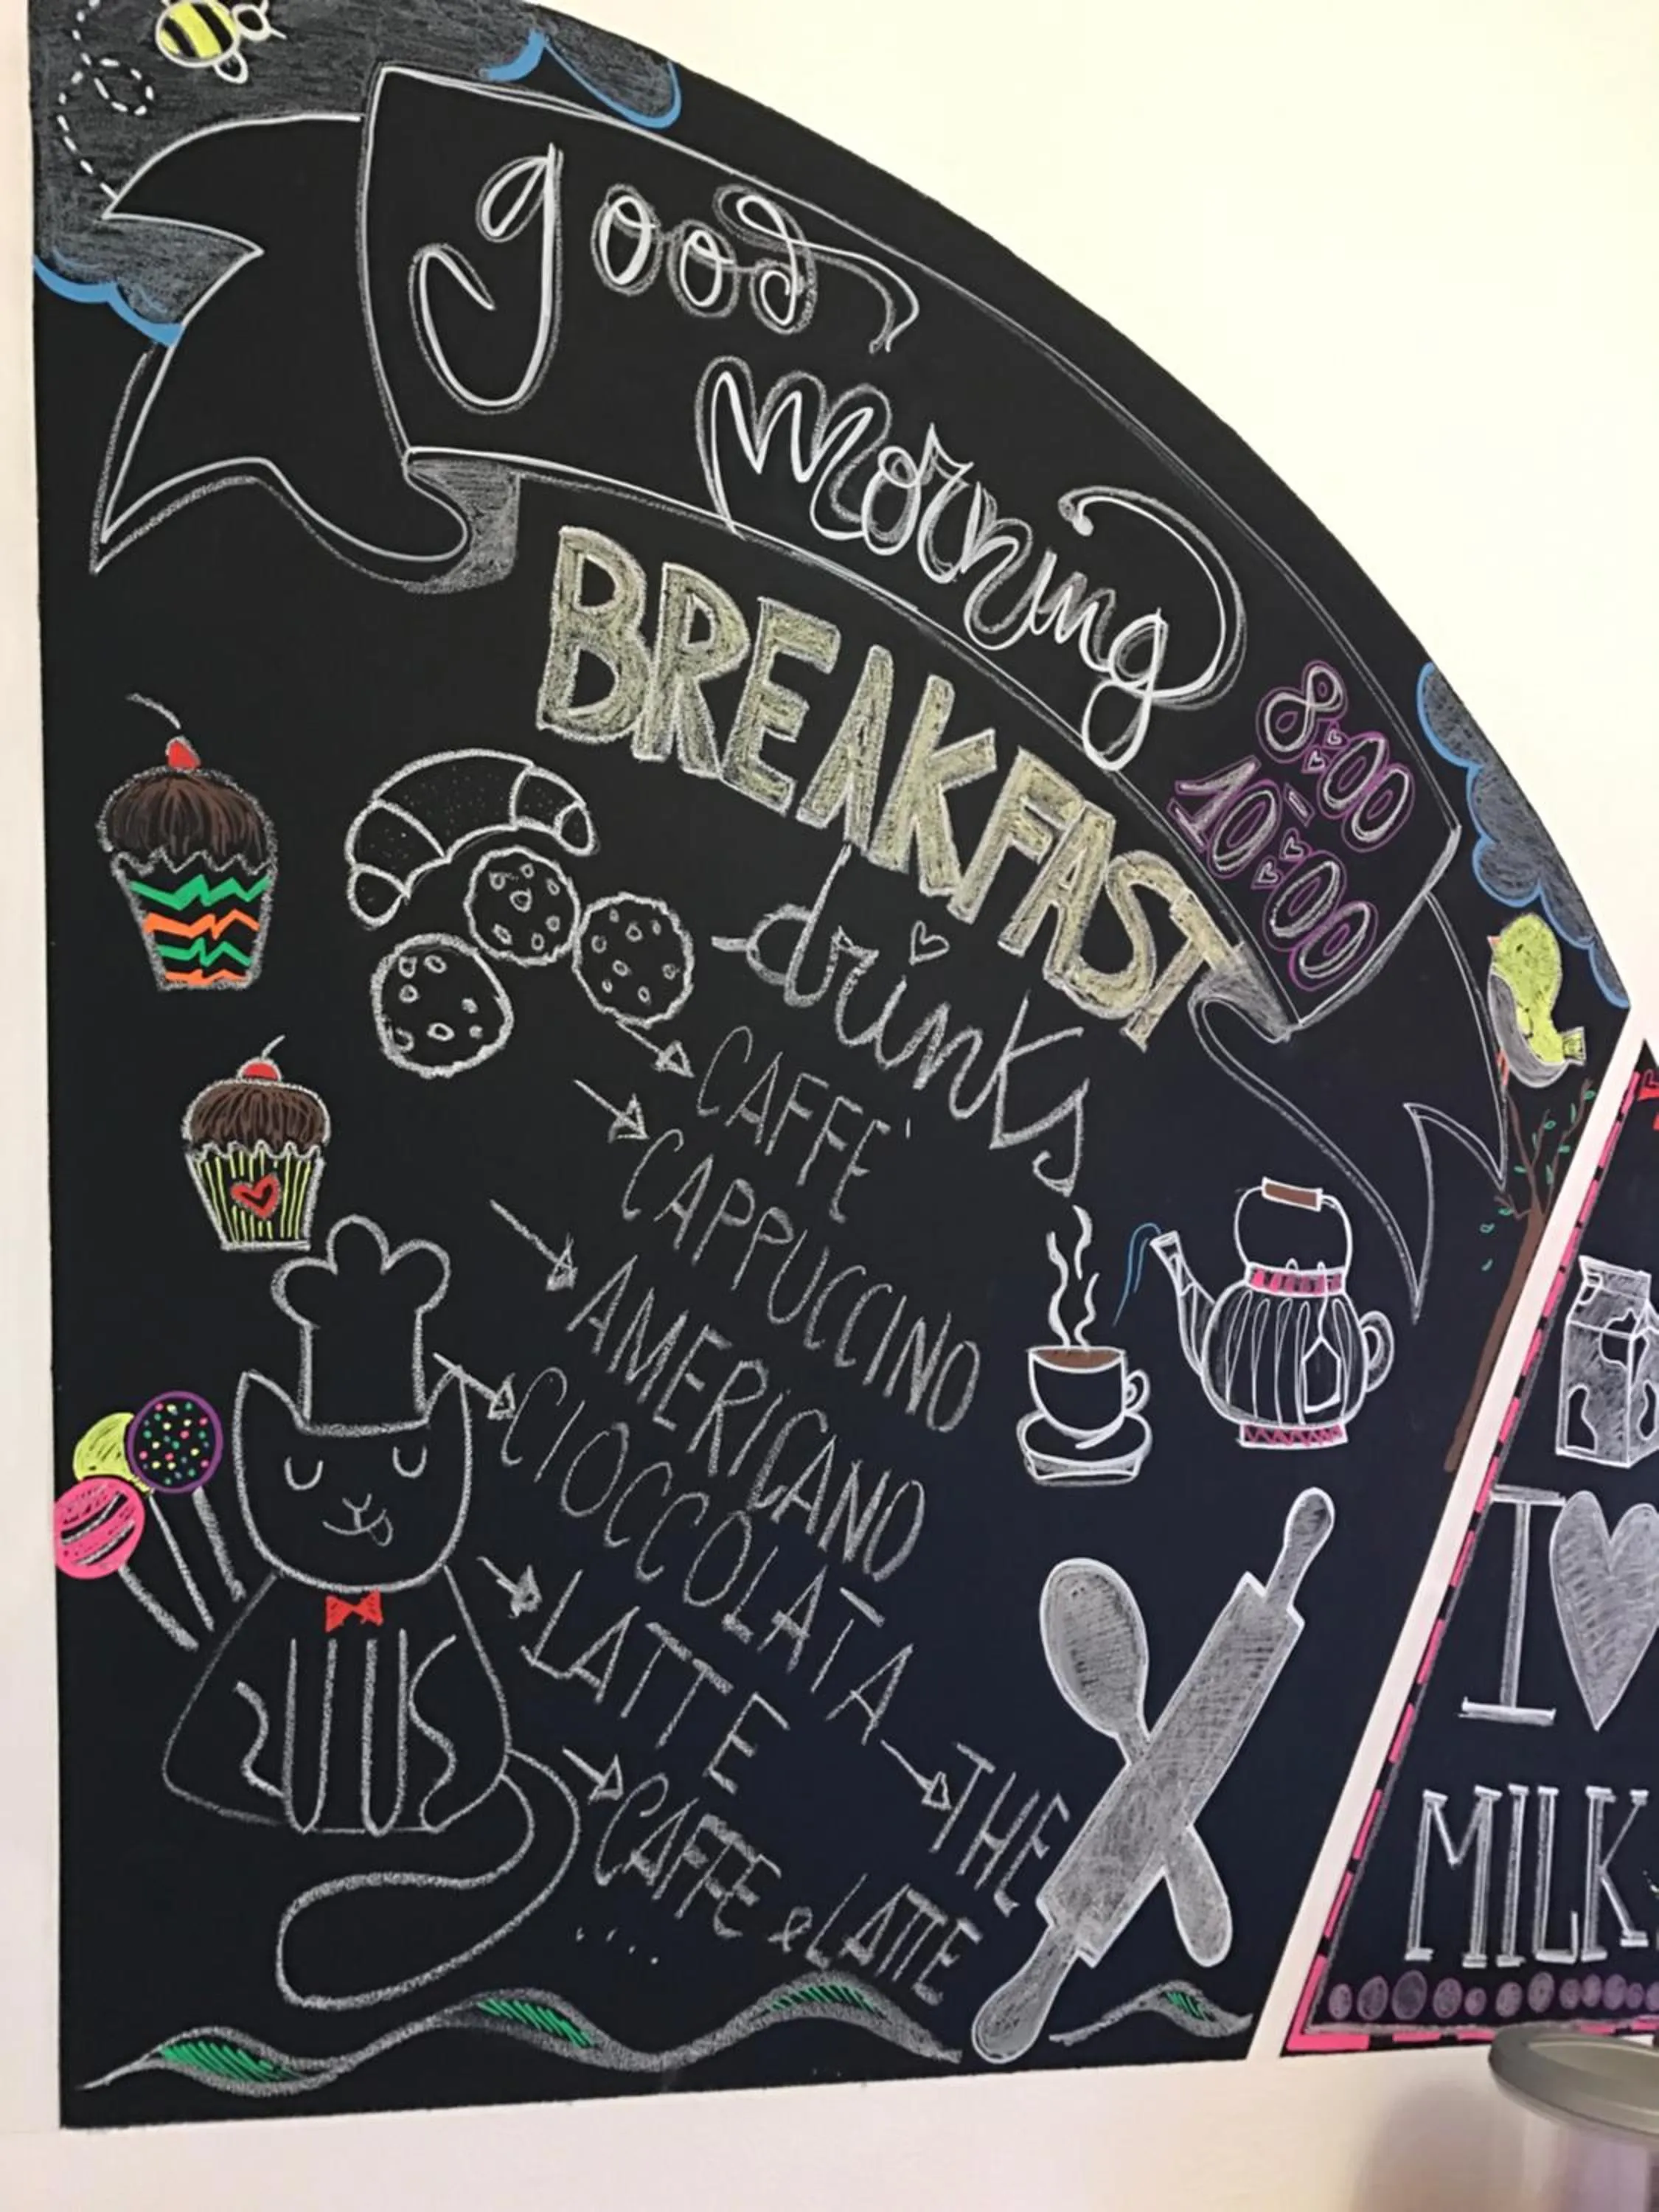 good
morning
8:00
-
10:00
BREAKFAST
drinks
CAFFE'
CAPPUCCINO
AMERICANO
CIOCCOLATA
LATTE
THE
CAFFE e LATTE
....
I ♥
MILK